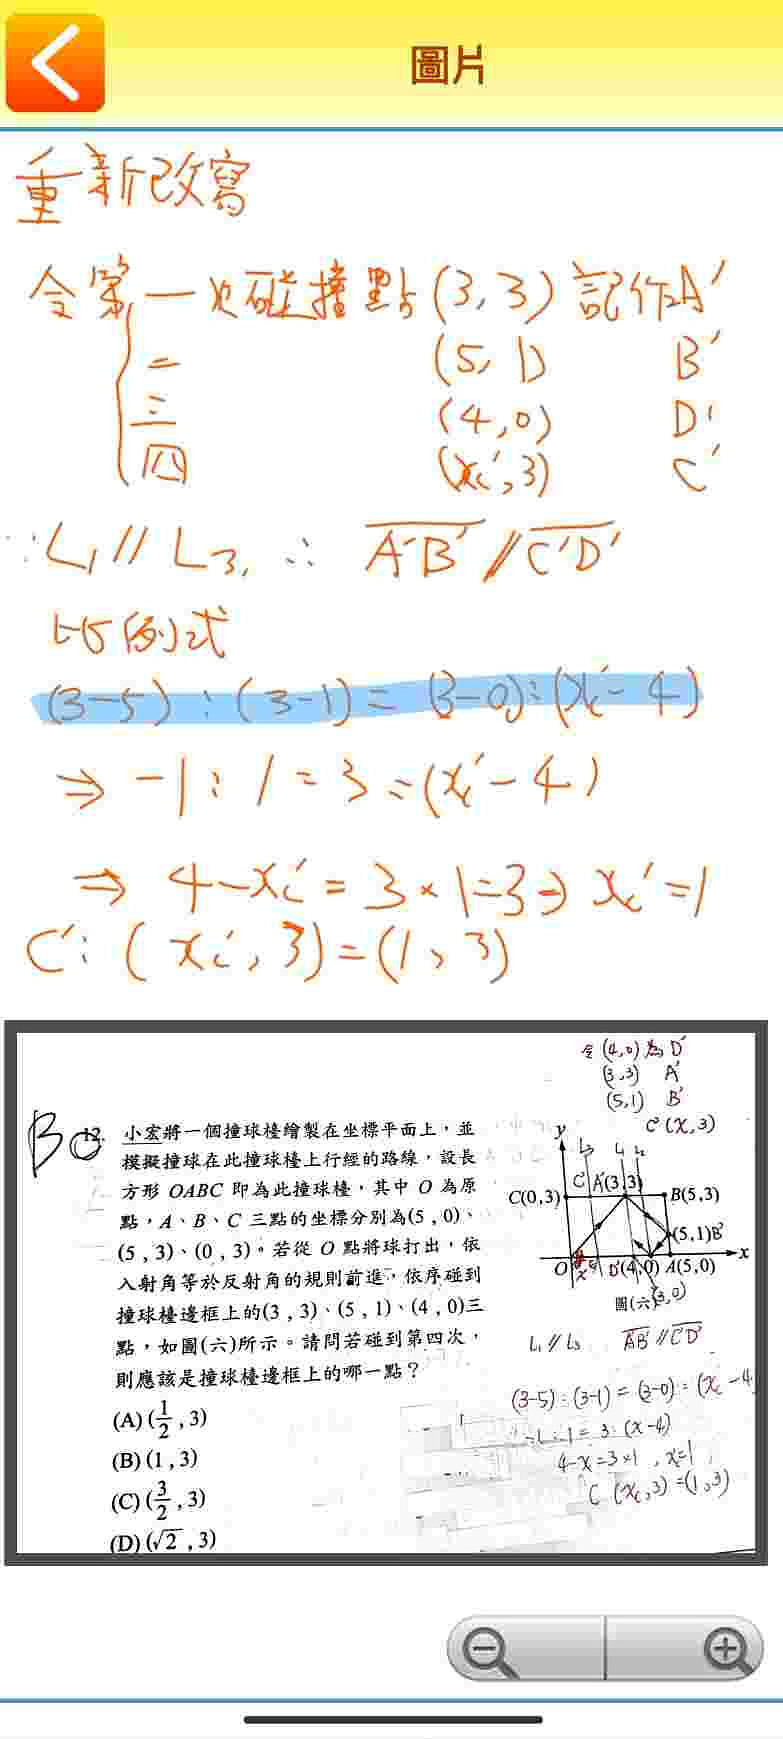 圖片
重新改寫
令第一次碰撞點(3,3)記作A'
二 (5,1) B'
三 (4,0) D'
四 (x',3) C'
∵L₁//L₃, ∴ A'B'//C'D'
比例式
(3-5):(3-1)=(3-0):(x'-4)
⇒ -1:1=3=(x'-4)
⇒ 4-x'=3×1=3⇒x'=1
C':(x',3)=(1,3)
令(4,0)為D'
(3,3) A'
(5,1) B'
C'(x,3)
B
12. 小宏將一個撞球檯繪製在坐標平面上，並
模擬撞球在此撞球檯上行經的路線，設長
方形 OABC 即為此撞球檯，其中 O 為原
點，A、B、C 三點的坐標分別為(5,0)、
(5,3)、(0,3)。若從 O 點將球打出，依
入射角等於反射角的規則前進，依序碰到
撞球檯邊框上的(3,3)、(5,1)、(4,0)三
點，如圖(六)所示。請問若碰到第四次，
則應該是撞球檯邊框上的哪一點？
(A) (1/2, 3)
(B) (1, 3)
(C) (3/2, 3)
(D) (√2, 3)
y
L₃ L₁ L₂
C(0,3) C' A'(3,3) B(5,3)
(5,1)B'
O D'(4,0) A(5,0) x
圖(六) (3,0)
L₁//L₃ A'B'//C'D'
(3-5):(3-1)=(3-0):(x-4)
-1:1=3:(x-4)
4-x=3×1, x=1
C(x,3)=(1,3)